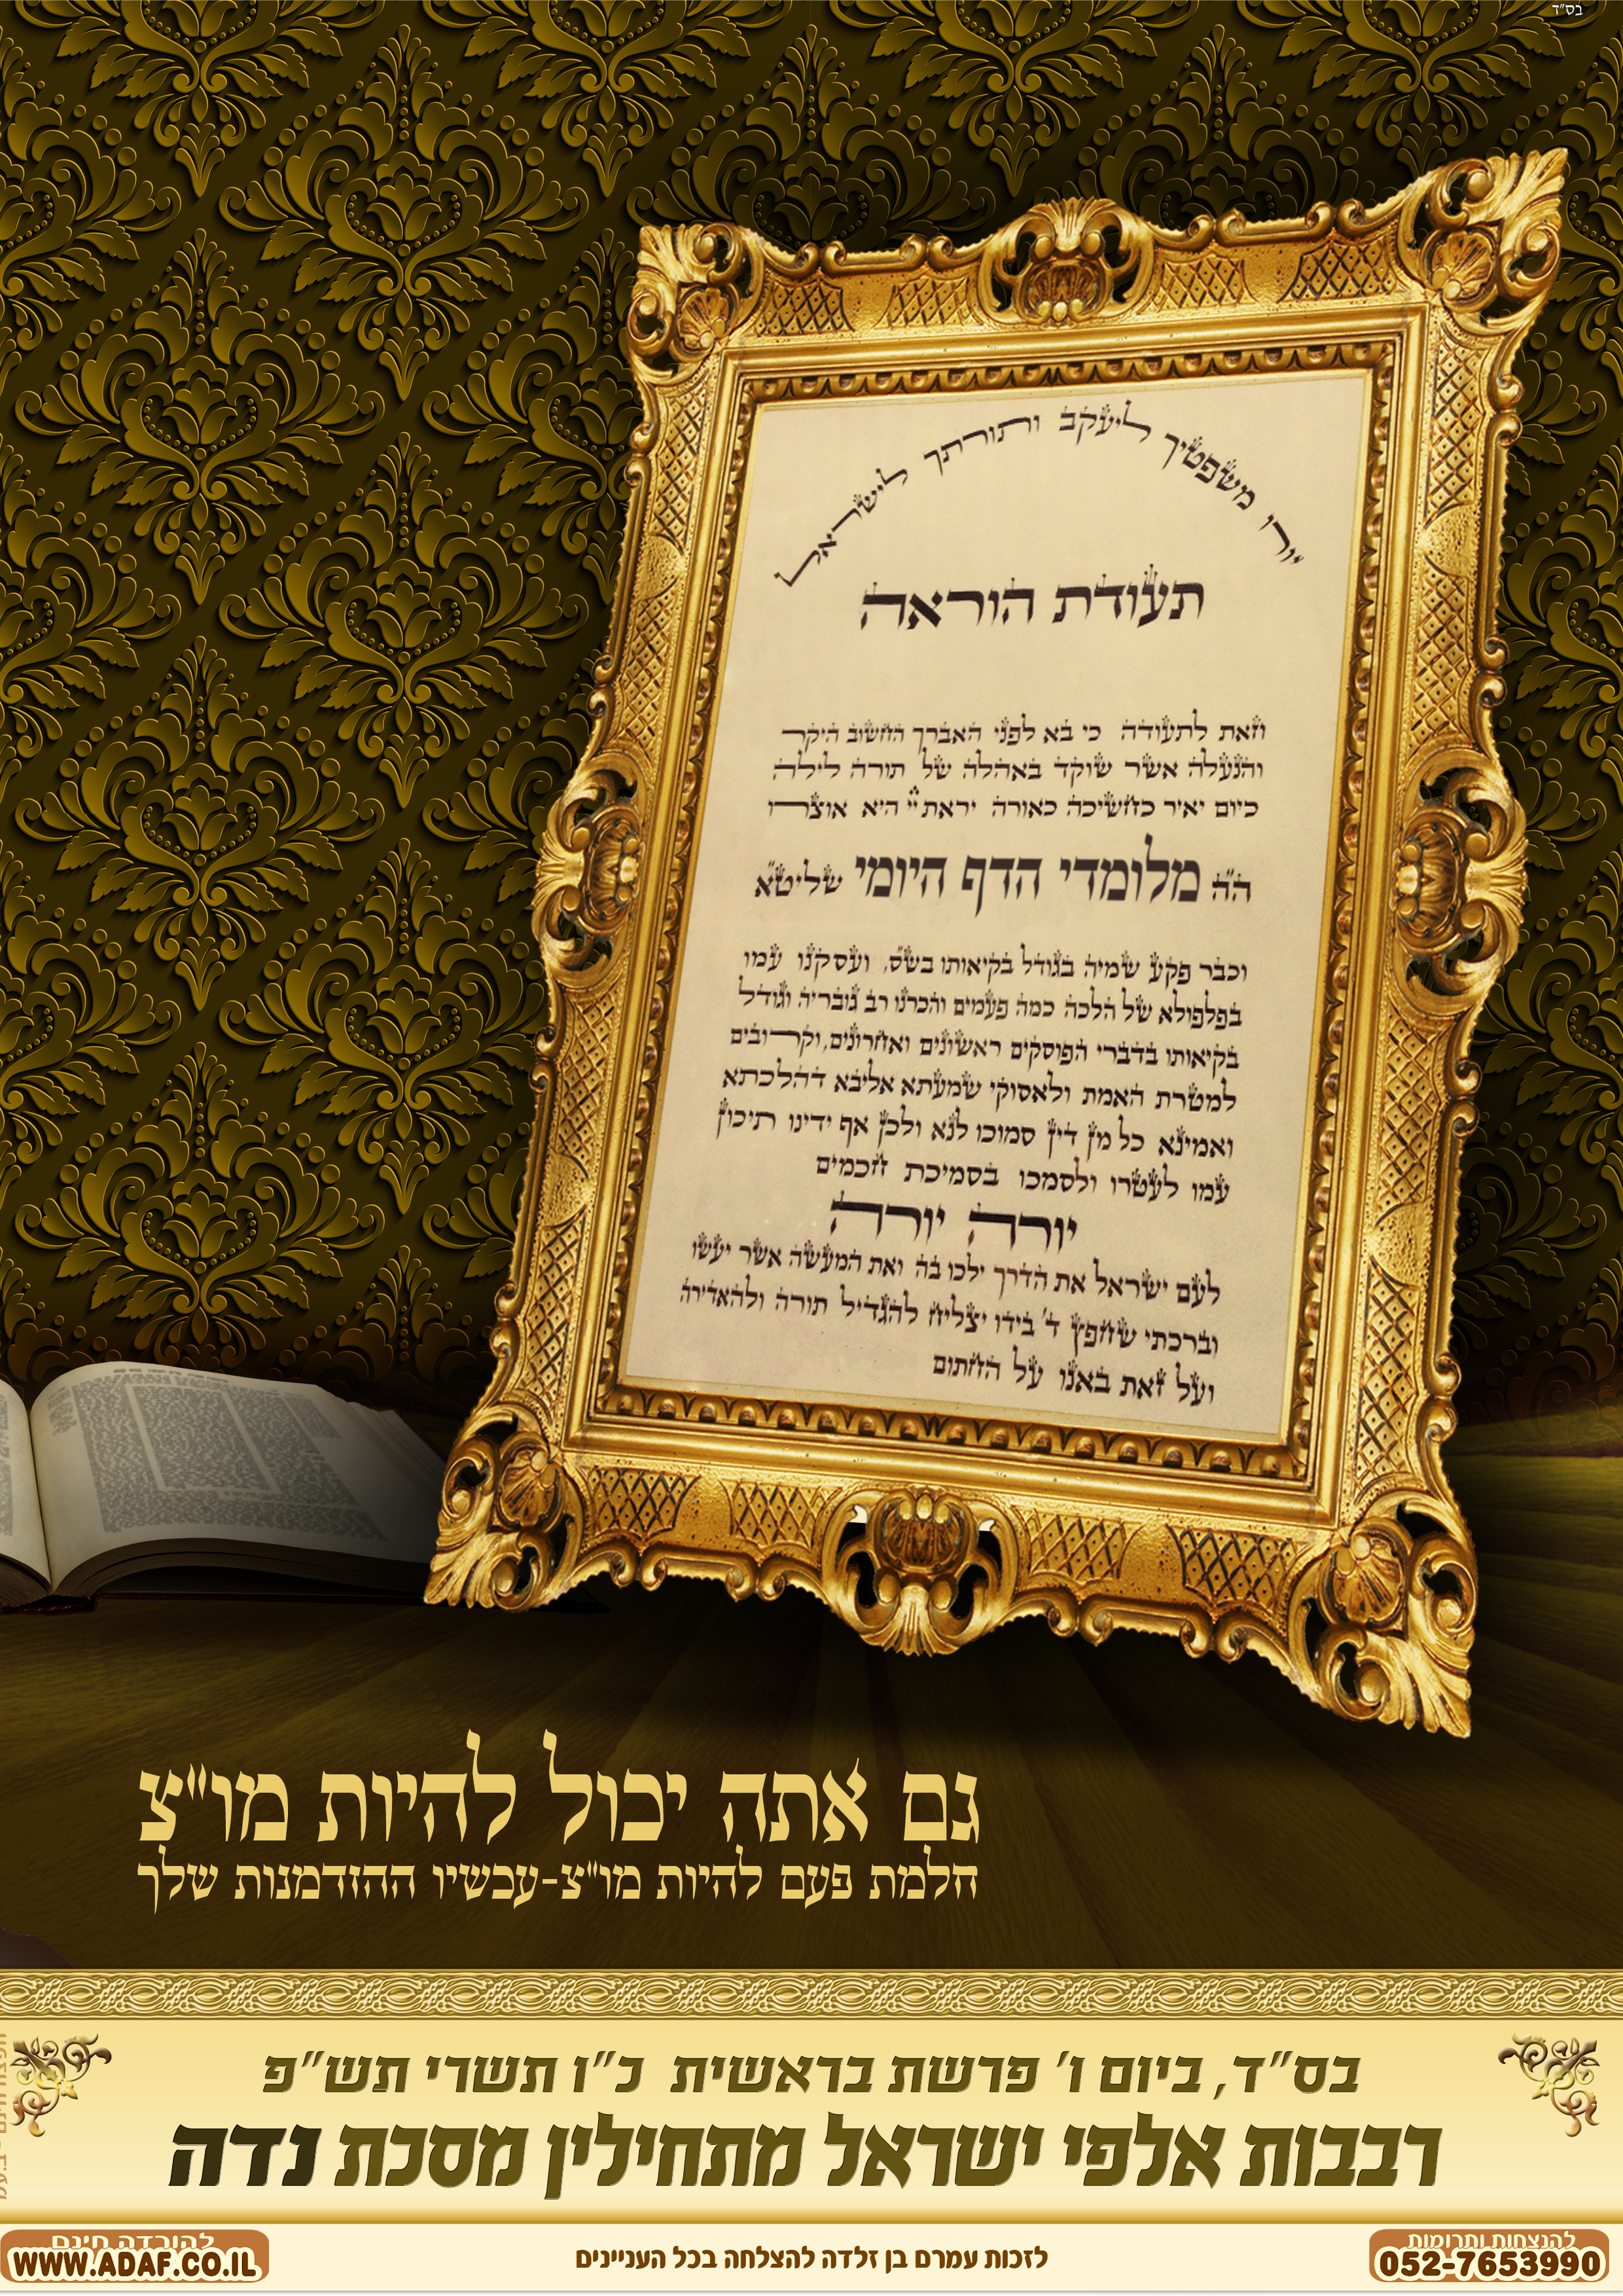 בס"ד
יורו משפטיך ליעקב ותורתך לישראל
תעודת הוראה
וזאת לתעודה כי בא לפני האברך החשוב היקר
והנעלה אשר שוקד באהלה של תורה לילה
כיום יאיר כחשיכה כאורה יראת ה' היא אוצרו
ה"ה מלומדי הדף היומי שליט"א
וכבר פקע שמיה בגודל בקיאותו בש"ס, ועסקנו עמו
בפלפולא של הלכה כמה פעמים והכרנו רב גובריה וגודל
בקיאותו בדברי הפוסקים ראשונים ואחרונים, וקרובים
למטרת האמת ולאסוקי שמעתא אליבא דהלכתא
ואמינא כל מן דין סמוכו לנא ולכן אף ידינו תיכון
עמו לעטרו ולסמכו בסמיכת חכמים
יורה יורה
לעם ישראל את הדרך ילכו בה ואת המעשה אשר יעשו
וברכתי שחפץ ד' בידו יצליח להגדיל תורה ולהאדירה
ועל זאת באנו על החתום
גם אתה יכול להיות מו"צ
חלמת פעם להיות מו"צ-עכשיו ההזדמנות שלך
בס"ד, ביום ו' פרשת בראשית כ"ו תשרי תש"פ
רבבות אלפי ישראל מתחילין מסכת נדה
להנצחות ותרומות
052-7653990
לזכות עמרם בן זלדה להצלחה בכל העניינים
להורדה חינם
WWW.ADAF.CO.IL